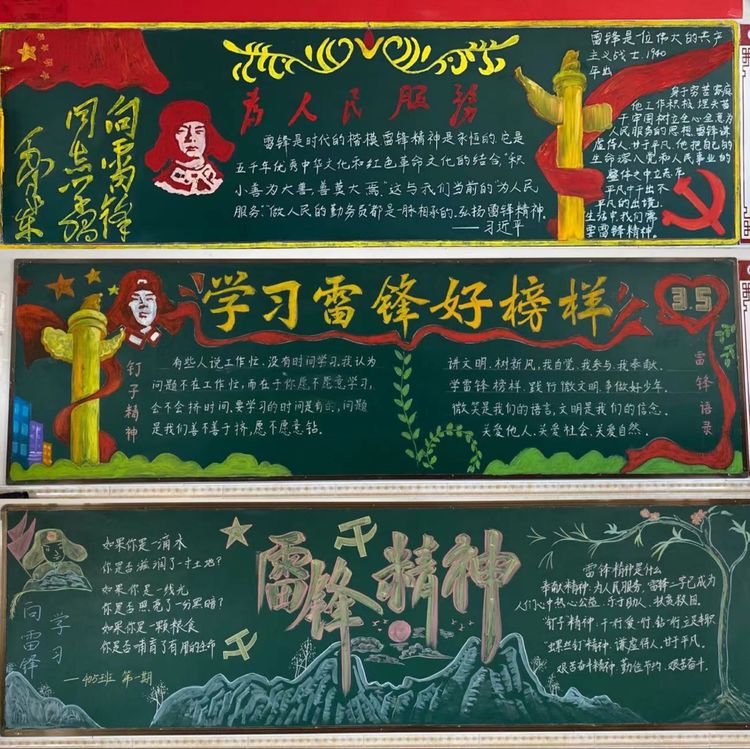 为人民服务
向雷锋
同志学习
毛泽东
雷锋是时代的楷模,雷锋精神是永恒的.它是
五千年优秀中华文化和红色革命文化的结合,“积
小善为大善,善莫大焉”这与我们当前的“为人民
服务”,“做人民的勤务员”都是一脉相承的.弘扬雷锋精神.
——习近平
雷锋是一位伟大的共产
主义战士.1940
年出
身于穷苦家庭
他工作积极,埋头苦
干牢固树立全心全意为
人民服务的思想,雷锋谦
虚待人,甘于平凡,他把自己的
生命深入党和人民事业的
整体之中立志在
平凡中干出不
平凡的出境.
生活中,我们需
要雷锋精神.
学习雷锋好榜样
3.5
钉子精神
有些人说工作忙,没有时间学习.我认为
问题不在工作忙,而在于你愿不愿意学习,
会不会挤时间.要学习的时间是有的,问题
是我们善不善于挤,愿不愿意钻.
讲文明,树新风,我自觉,我参与,我奉献.
学雷锋榜样,践行微文明,争做好少年.
微笑是我们的语言,文明是我们的信念.
关爱他人,关爱社会,关爱自然.
雷锋语录
雷锋精神
学习
向雷锋
如果你是一滴水
你是否滋润了一寸土地?
如果你是一线光
你是否照亮了一分黑暗?
如果你是一颗粮食
你是否哺育了有用的生命
——405班 第一期
雷锋精神是什么
奉献精神:为人民服务,雷锋二字已成为
人们心中热心公益,乐于助人,扶贫救困.
“钉子精神”:干一行爱一行,钻一行
“螺丝钉精神”:谦虚待人,甘于平凡.
艰苦奋斗精神:勤俭节约,艰苦奋斗.